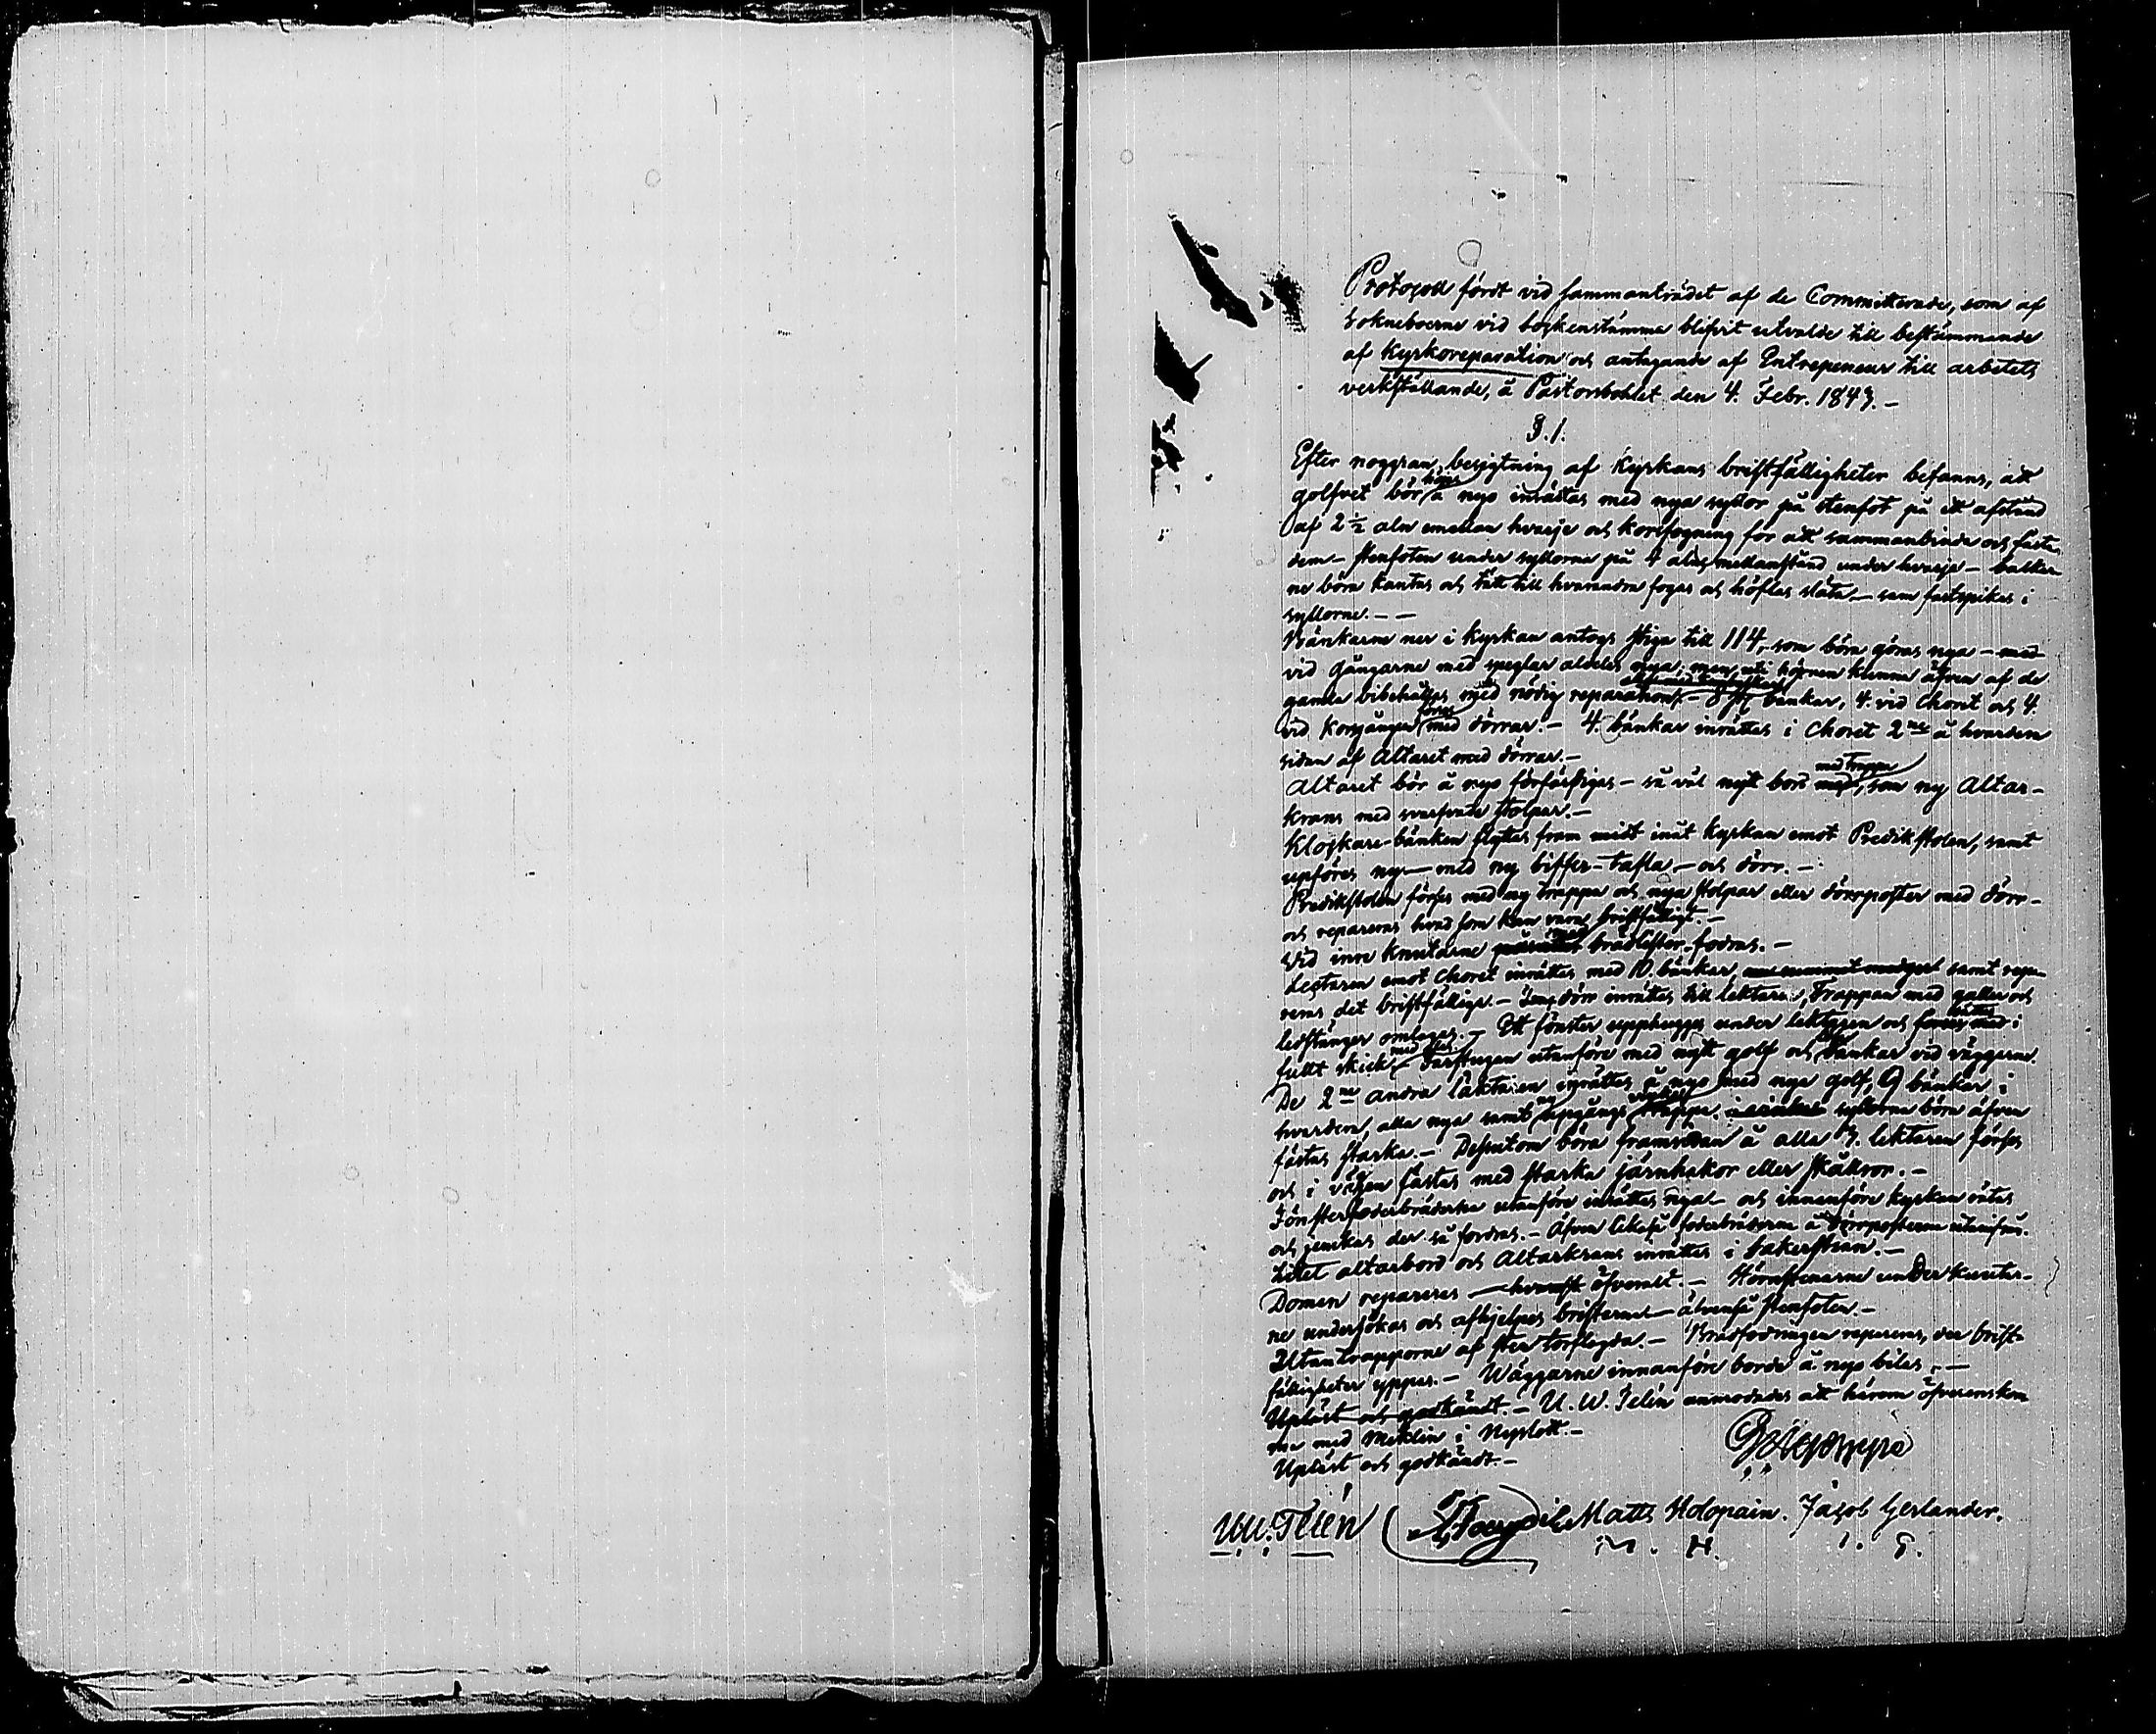 Protocoll fördt vid sammanträdet af de Committerade, som af
Sokneboerne vid sockenstämma blifvit utvalde till bestämmande
af Kyrkoreparation och antagande af Entrepeneur till arbetets
verkställande, å Pastorsbohlet den 4. Febr. 1843.-
§.1.
Efter noggran besigtning af Kyrkans bristfälligheter befanns, att
golfvet bör å nyo inrättas med nya syllor på stenfot på ett afstånd
af 2 1/2 aln emellan hvarje och korsfogning för att sammanbinda och fästa
dem - stenfoten under syllorna på 4 alns mellanstånd under hvarje -
ne böra kantas och tätt till hvarandra fogas och höflas släta - som fastspikas i
syllorne.--
Bänkarne ner i Kyrkan antogs stiga till 114, som böra göras nya - med
vid Gångarne med speglar aldeles nya; men uti hörnen kunna äfven af de
gamla bibehållas med nödig reparation - 8 bänkar, 4. vid Choret och 4.
vid Korgången förses med dörrar.- 4. bänkar inrättas i Choret 2ne å hvardera
sidan af Altaret med dörrar.-
Altaret bör å nyo förfärdigas - så väl nytt bord med trappa, som ny Altar-
krans med svarfvade stolpar.-
Klockare-bänken flyttas fram midt inåt kyrkan emot Predikstolen, samt
upföres ny - med ny siffer-tafla - och dörr.-
Predikstolen förses med ny trappa och nya stolpar eller dörrposter med dörr-
och repareras hvad som kan vara bristfälligt.-
Vid inre Knutarne brädlister fodras.-
Lectaren emot Choret inrättas med 10. bänkar, samt repa-
reras det bristfälliga - dörr inrättas till lektaren, Trappan med galler och
ledstänger omlagas.- Ett fönster upphugges under lektaren och i
fullt skick - Farstugan utanföre med nytt golf och bänkar vid väggarne.
De 2ne andra läktaren inrättas å nyo med nya golf, 9 bänkar i
hvardera, alla nya samt ny upgångs trappa, syllorna böra äfven
fästas starka.- Dessutom böra framsidan å alla 3. lektaren förses
och i väggen fästas med starka järnhakor eller skåkror.-
Fönsterfoderbräderna utanföre inrättas nya - och innanföre kyrkan rätas
och jemkas der så fordras.- Äfven likaså foderbräderna å dörrposterna utanföre.
Litet altarbord och Altarkrans inrättes i sakerstian.-
Domen repareres - öfveralt.- Hörnstenarne under Knutar-
ne undersökas och afhjelpes bristerna - älvenså stenfoten.-
Utantrapporne af sten torflagda.- Brädfodringen repareras, der brist-
fälligheter yppas.- Wäggarne innanföre borde å nyo bilas.-
Upläst och godkändt.- U. W. Telén anmodades att härom öfverenskom
ma med Meklin i Nyslott.-
Upläst och godkändt.-
U.W. Telén Matts Holopain. Jacob Gerlander.
M. H. I. G.